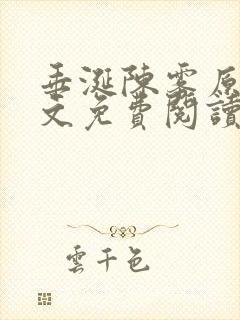 垂涎陳雾原
文免費閱讀
雲千色